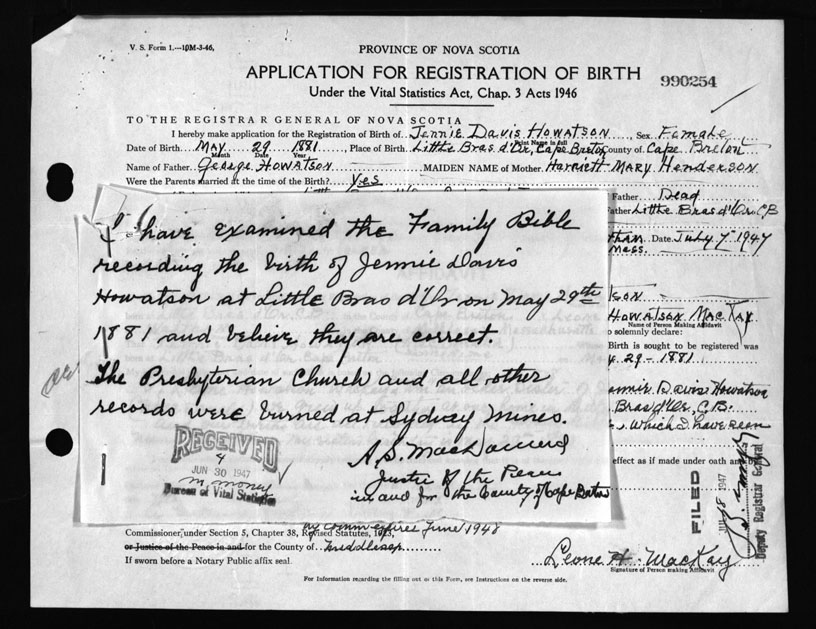 V. S. Form 1.—10M-3-46.
PROVINCE OF NOVA SCOTIA
APPLICATION FOR REGISTRATION OF BIRTH
990254
Under the Vital Statistics Act, Chap. 3 Acts 1946
TO THE REGISTRAR GENERAL OF NOVA SCOTIA
I hereby make application for the Registration of Birth of Jennie Davis Howatson, Sex Female
Print Name in full
Date of Birth May 29 1881, Place of Birth Little Bras d'Or, Cape Breton County of Cape Breton
Month Date Year
Name of Father George Howatson MAIDEN NAME of Mother Harriett Mary Henderson
Were the Parents married at the time of the Birth? Yes
Father Dead
Father Little Bras d'Or C.B
Date July 7 1947
Mass.
Howatson MacKay
Name of Person Making Affidavit
solemnly declare:
Birth is sought to be registered was
29-1881
Davis Howatson
Bras d'Or, C.B.
which I have seen
effect as if made under oath and
I have examined the Family Bible
recording the birth of Jennie Davis
Howatson at Little Bras d'Or on May 29th
1881 and believe they are correct.
The Presbyterian Church and all other
records were burned at Sydney Mines.
A.S. MacDonald
Justice of the Peace
in and for the County of Cape Breton
RECEIVED
JUN 30 1947
Bureau of Vital Statistics
FILED
1947
Deputy Registrar General
my comm expires June 1948
Commissioner under Section 5, Chapter 38, Revised Statutes, 1923,
or Justice of the Peace in and for the County of Middlesex
If sworn before a Notary Public affix seal.
Leone H. MacKay
Signature of Person making Affidavit
For Information regarding the filling out of this Form, see Instructions on the reverse side.